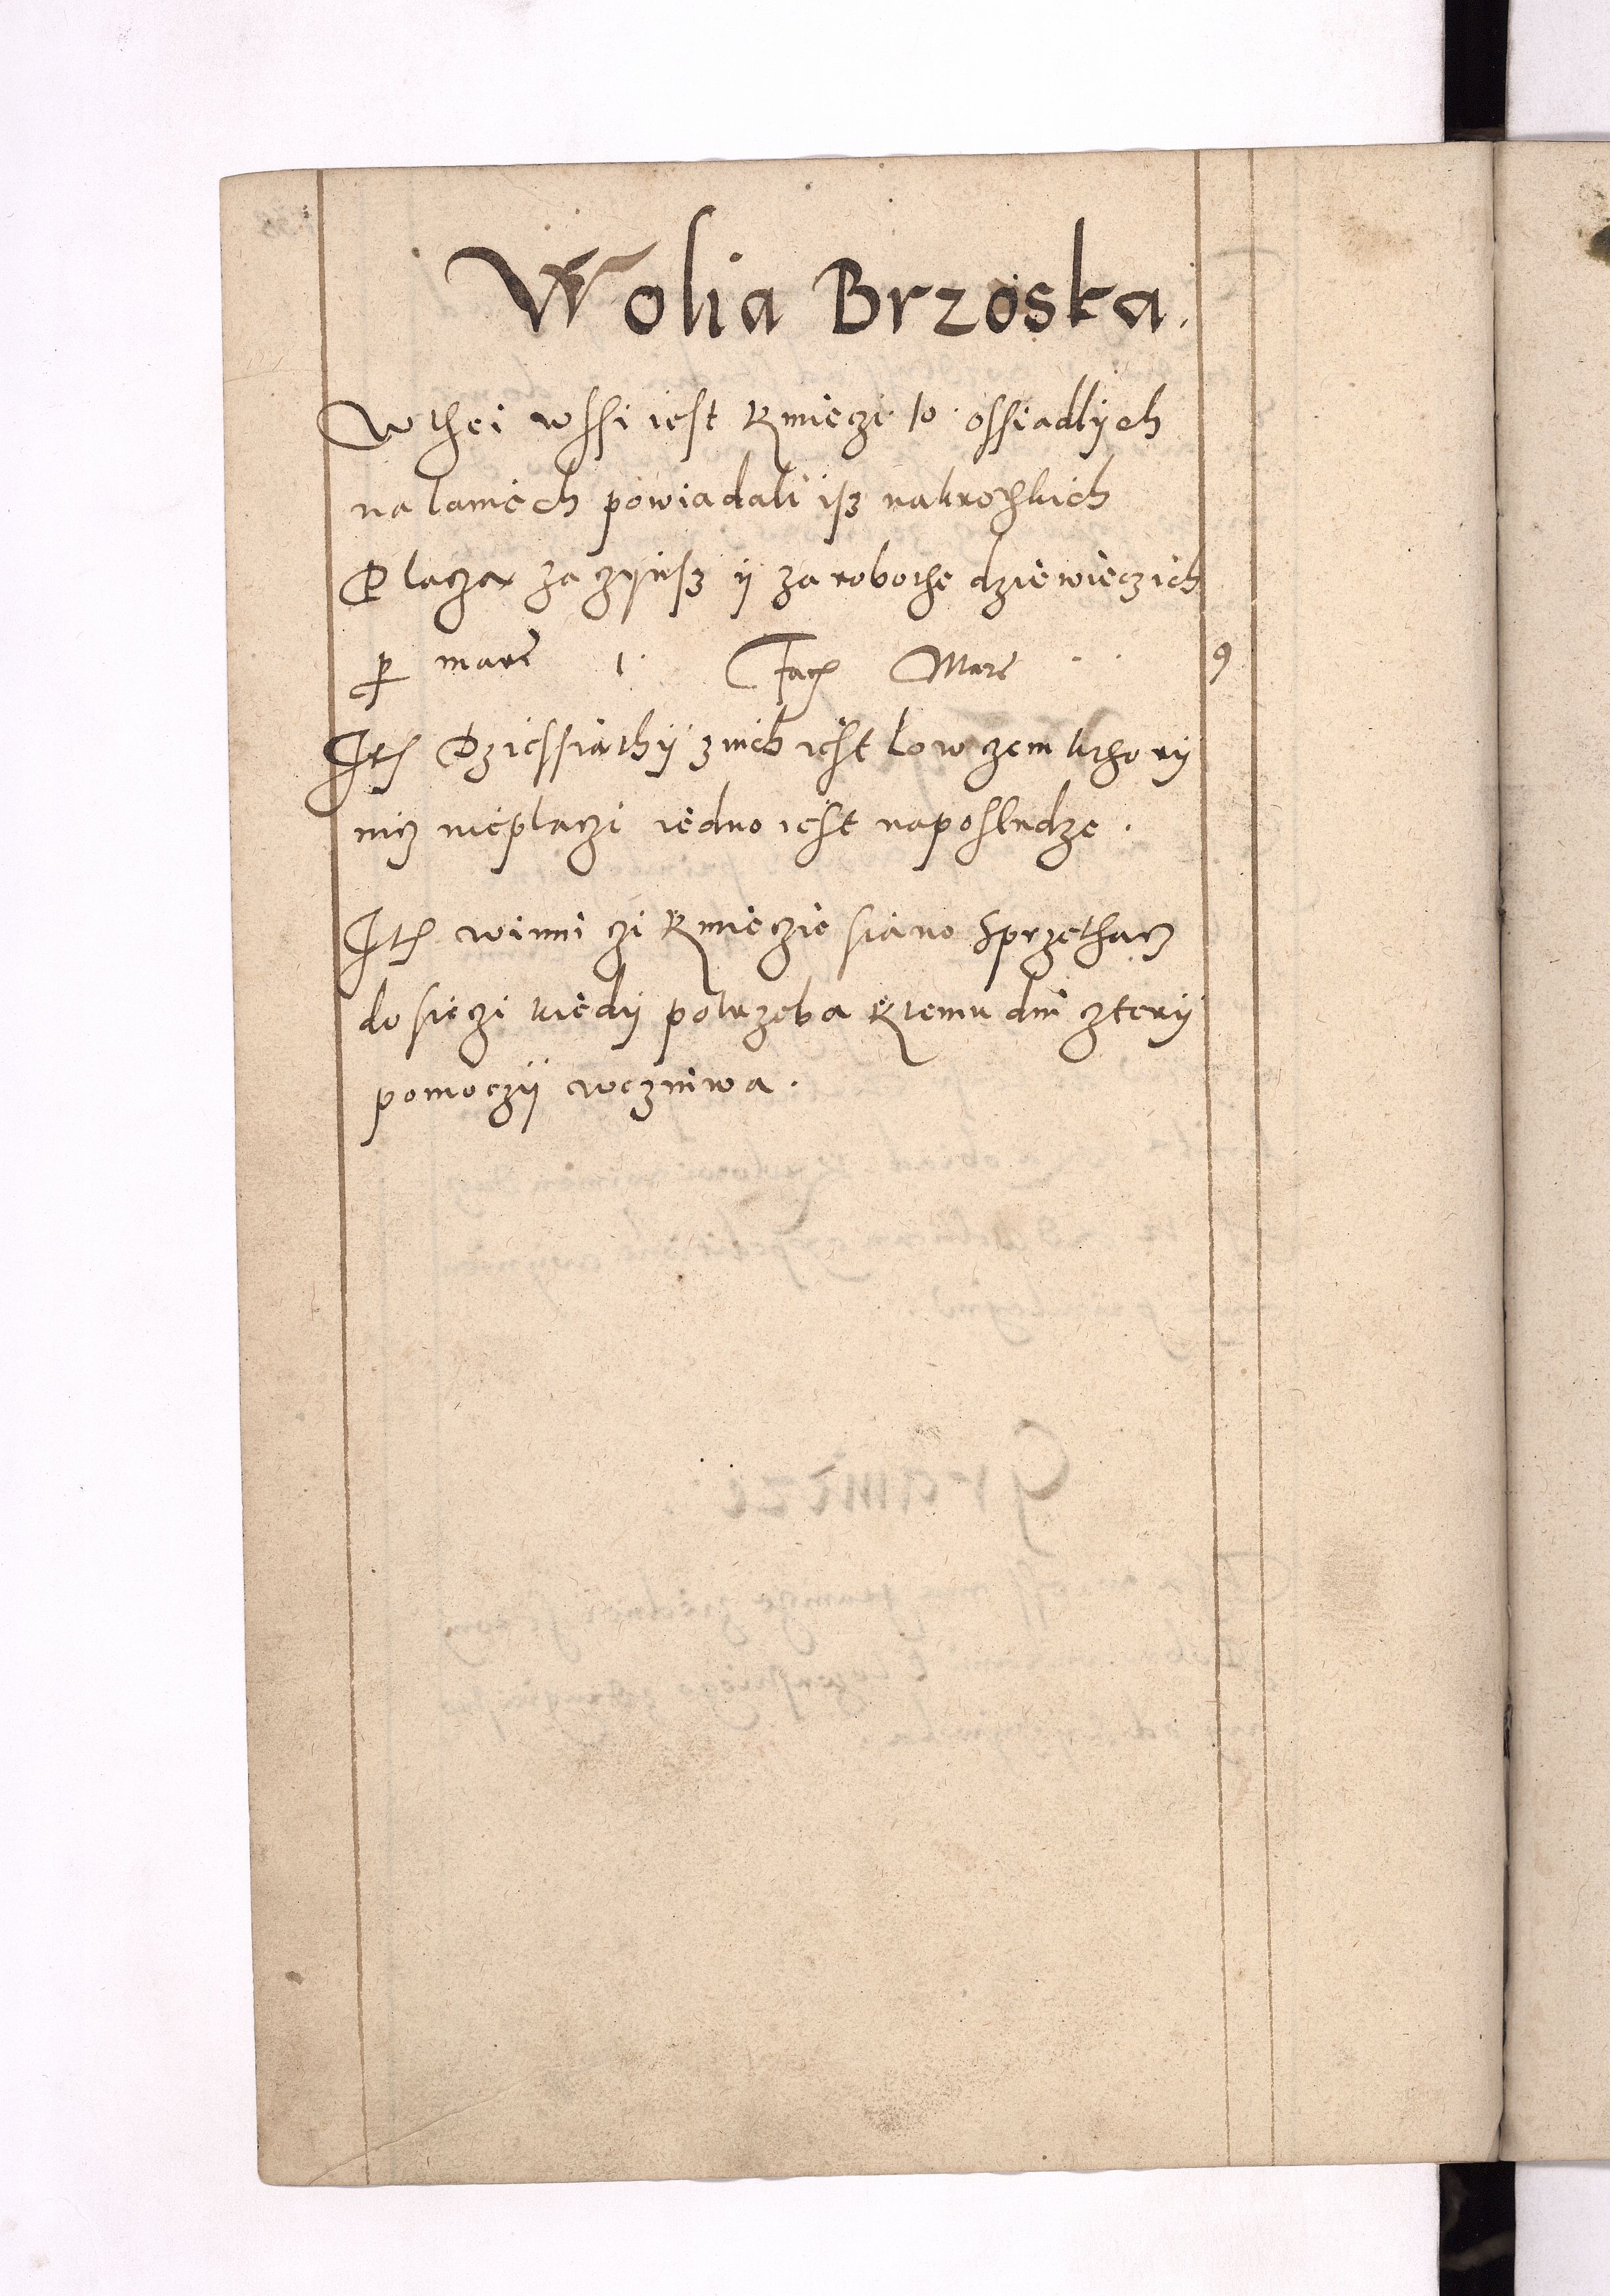 Wolia Brzoska.
W thei wssi iest Kmieczi · 10 · ossiadlÿch
na laniech powiadali isz na krothkich
Placza za czÿnsz ÿ za robothe dziewieczich
per marc 1 · Facit Marc · · 9
Item Dziessiathÿ znich iest Lowczem kthorÿ
nicz nieplaczi iedno iest naposludze ·
Item winni czi Kmieczie siano sprzethacz
do sieczi kiedÿ potrzeba K temu dni czterÿ
pomoczÿ weznÿwa ·